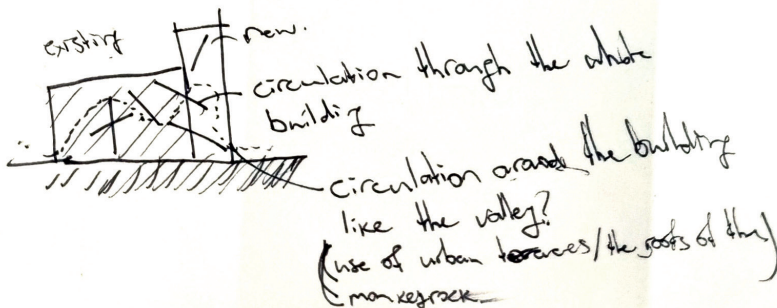 existing
new.
circulation through the whole
building
circulation around the building
like the valley?
(use of urban terraces/the roofs of the)
(monkeyrock